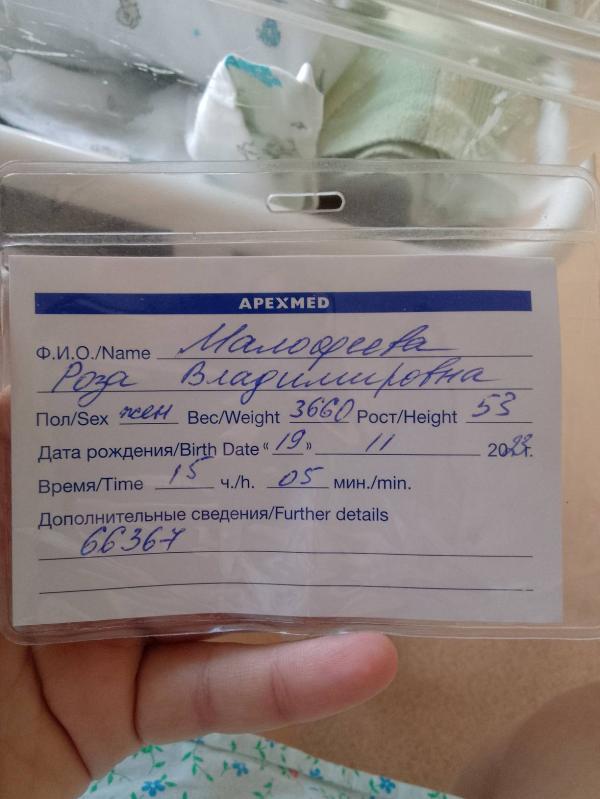 APEXMED
Ф.И.О./Name Малофеева
Роза Владимировна
Пол/Sex жен Вес/Weight 3660 Рост/Height 53
Дата рождения/Birth Date "19" 11 2023г.
Время/Time 15 ч./h. 05 мин./min.
Дополнительные сведения/Further details
66367